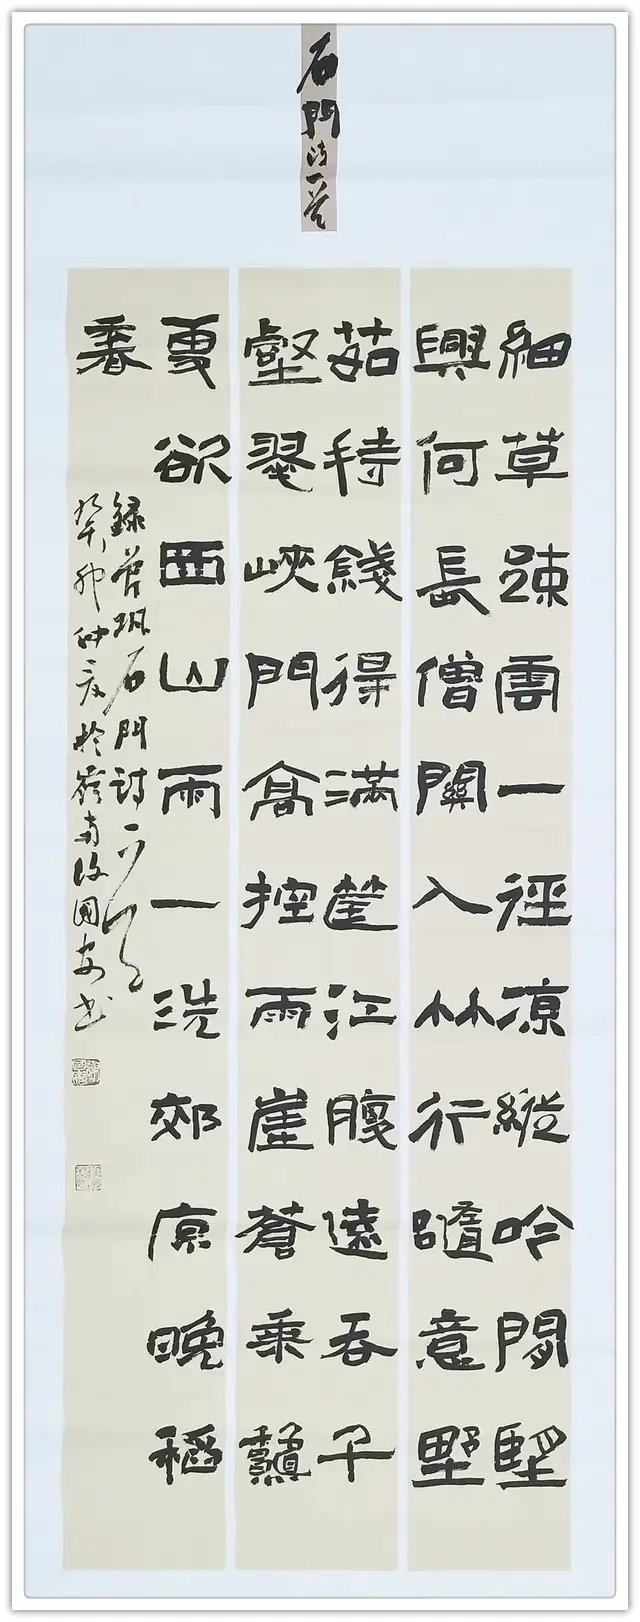 石門詩一首
細草踈雲一徑凉縱吟閒望
興何長僧關入竹行隨意野
茹持錢得滿筐江腹遠吞千
壑翠峽門高控兩崖蒼乘
更欲西山雨一洗郊原晚稻
香
錄曾巩石門詩一首
癸卯仲夏於嶺南國安書